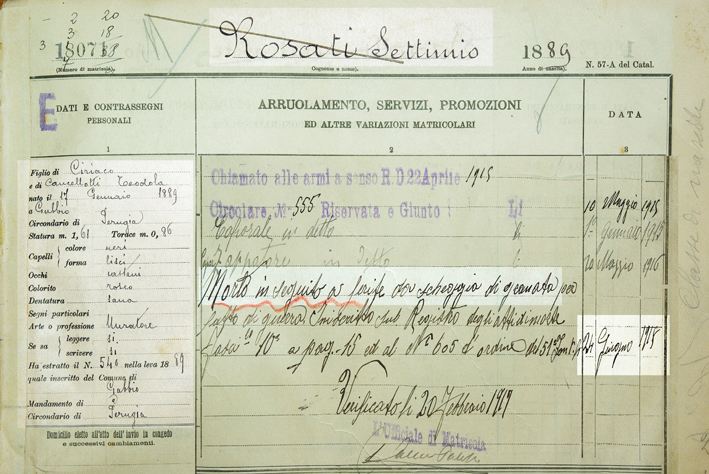 2 20
3 18
3
18071
(Numero di matricola).
Rosati Settimio
Cognome e nome.
1889
Anno di nascita.
N. 57-A del Catal.
E
DATI E CONTRASSEGNI
PERSONALI
1
ARRUOLAMENTO, SERVIZI, PROMOZIONI
ED ALTRE VARIAZIONI MATRICOLARI
2
DATA
3
Figlio di Ciriaco
e di Cancellotti Teodola
nato il 17 Gennaio 1889
a Gubbio
Circondario di Perugia
Statura m. 1,61 Torace m. 0,86
Capelli colore neri
forma lisci
Occhi castani
Colorito roseo
Dentatura sana
Segni particolari
Arte o professione Muratore
Se sa leggere si
scrivere si
Ha estratto il N. 540 nella leva 1889
quale inscritto del Comune di
Gubbio
Mandamento di
Circondario di Perugia
Domicilio eletto all'atto dell'invio in congedo
e successivi cambiamenti.
Chiamato alle armi a senso R. D. 22 Aprile 1915
Circolare N. 555 Riservata e Giunto li
10 Maggio 1915
Caporale in detto
Gennaio
Zappatore in detto
20 Maggio 1916
Morto in seguito a ferite da scheggia di granata per
fatto di guerra Inscritto sul Registro degli atti di morte
a pag. 15 ed al N° 605 d'ordine
24 Giugno 1918
Verificato li 20 Febbraio 1919
L'Ufficiale di Matricola